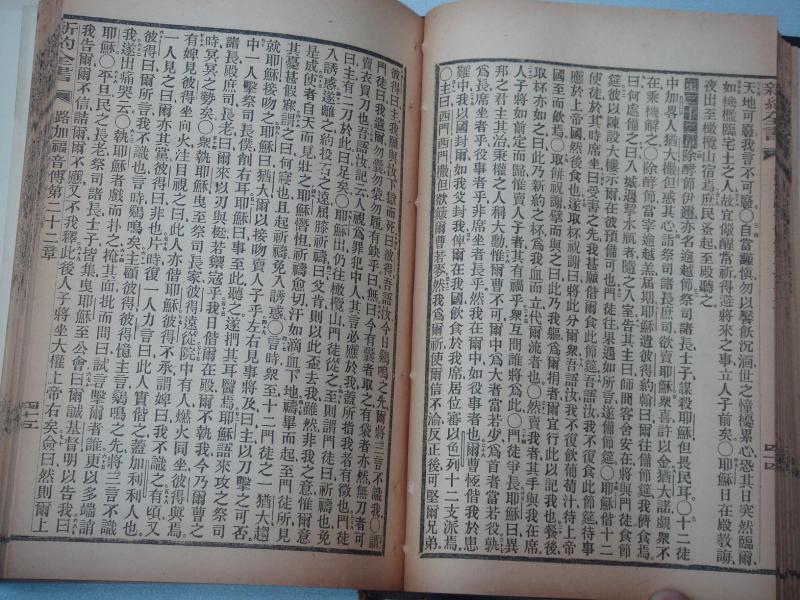 天地可廢我言不可廢〇自當謹慎勿以饕飲沉湎世之憧擾累心恐其日突然臨爾
如機檻臨宅土之人故宜儆醒當祈得避將來之事立人子前矣〇耶穌日在殿教誨
夜出至橄欖山宿焉庶民蚤起至殿聽之
除酵節伊邇亦名逾越節祭司諸長士子謀殺耶穌但畏民耳〇十二徒
中加畧人猶大撒但惑其心語祭司諸長及殿司欲賣耶穌眾喜許以金猶大諾覷眾不
在乘機解之〇除酵節當宰逾越羔屆期耶穌遣彼得約翰曰爾往備節筵我儕食焉
曰何處備之曰入城遇挈水瓶者隨之入室告其主曰師問客舍安在將與門徒食節
筵彼以陳設大樓示爾在彼預備可也門徒往果遇如所言遂備節筵〇時至耶穌偕十二
使徒於其時席坐曰受害之先我甚願偕爾食此節筵吾語汝我不復食此節筵待事
應於上帝國然後食也遂取杯祝謝曰將此分爾眾吾語汝我不復飲葡萄汁待上帝
國至而飲焉〇取餅祝謝擘而與之曰此乃我軀為爾捐者爾宜行此以記我也餐後
取杯亦如之曰此乃新約之杯為我血而立代爾流者也〇然賣我者其手與我在席
人子將如前定而歸惟賣人子者其有禍乎眾互問誰將為此〇門徒爭長耶穌曰異
邦之君主其治秉權之人稱大勳惟爾曹不可爾中為大者當若少為首者當若役孰
為長席坐者乎役事者乎非席坐者乎然我在爾中如役事者也爾曹恆偕我於患
難中我以國封爾如我父封我俾爾在我國飲食於我席居位審以色列十二支派焉
〇主曰西門西門撒但欲簸爾曹若麥然我為爾祈使爾信不渝反正後可堅爾兄弟
彼得曰主我願與汝下獄而死曰彼得吾語汝今日鷄鳴之先爾將三言不識我〇謂
門徒曰我遣爾勿囊勿袋勿履有缺乎曰無曰今有囊者取之有袋者亦然無刀者可
賣衣買刀也吾語汝記云人視為罪犯中人其言必應於我蓋所指我者有徵也門徒
曰主有二刀於此曰足矣〇耶穌出仍往橄欖山門徒從之至則謂門徒曰祈禱也免
入誘惑遂離之約投石之遠屈膝祈禱曰父肯則以此盃去我雖然非我之意惟爾意
是成使者自天而見壯之耶穌憯怛祈禱愈切汗如滴血下地禱畢而起至門徒所見
其憂甚假寐謂之曰何寢也且起祈禱免入誘惑〇言時眾至十二門徒之一猶大趨
就耶穌接吻之耶穌曰猶大爾以接吻賣人子乎左右見事將及曰主以刀擊之可否
中一人擊祭司長僕削右耳耶穌曰事至此聽之遂捫其耳醫焉耶穌語來攻之祭司
諸長殿庶司長老曰爾來以刃與梃若禦寇乎我日偕爾在殿爾不執我今乃爾曹之
時冥冥之勢矣〇眾執耶穌曳至祭司長家彼得遠從院中有人燃火同坐彼得與焉
有婢見彼得坐向火注目視之曰此人亦偕耶穌彼得不承謂婢曰我不識之有頃又
一人見之曰爾亦其黨彼得曰非也片時復一人力言曰此人實偕之蓋加利利人也
彼得曰爾所言我不識也言時鷄鳴矣主顧彼得彼得憶主言鷄鳴之先將三言不識
我遂出痛哭云〇執耶穌者戲而扑之掩其面批而問曰試言擊爾者誰更以多端誚
耶穌〇平旦民之長老祭司諸長士子皆集曳耶穌至公會曰爾誠基督明以告我曰
我告爾爾不信諸爾爾不應又不我釋此後人子將坐大權上帝右矣僉曰然則爾上
新約全書
路加福音傳第二十二章
四十五
新約全書
四十四